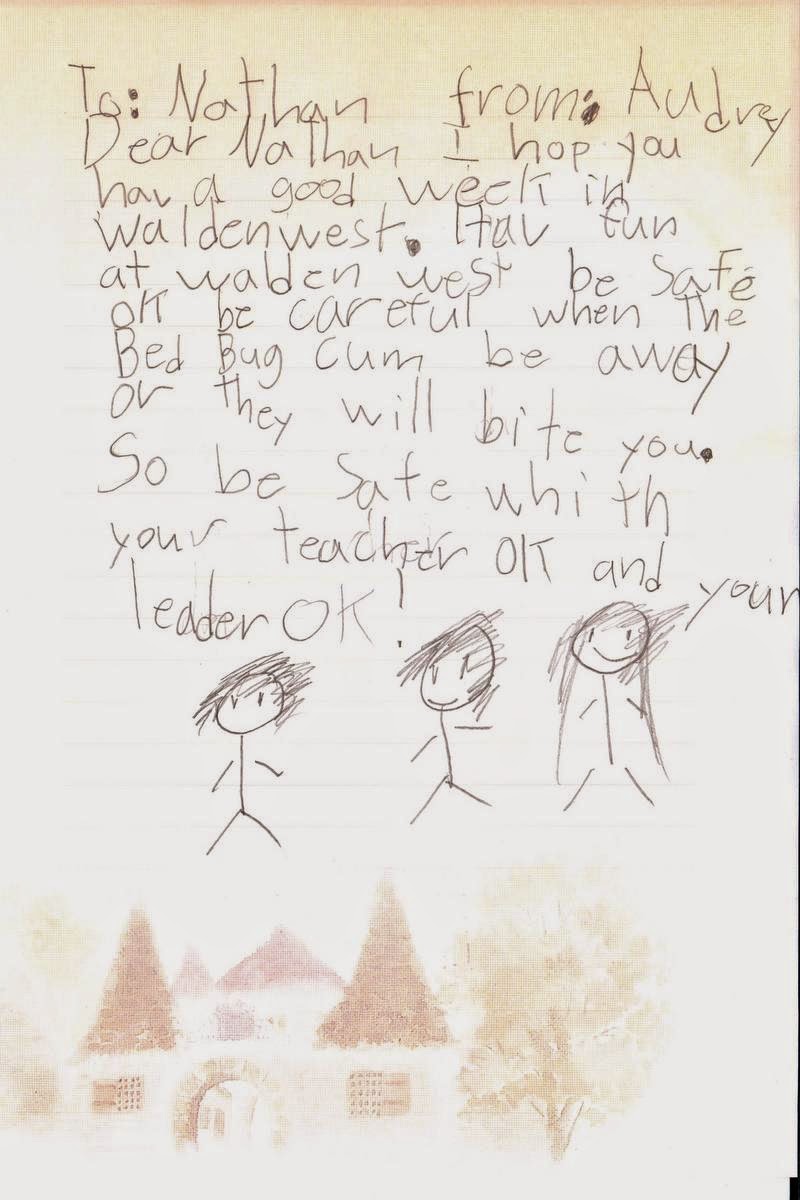 To: Nathan from: Audrey
Dear Nathan I hop you
hav a good week in
waldenwest. Hav fun
at walden west be Safe
OK be careful when the
Bed Bug cum be away
or they will bite you.
So be Safe whith
your teacher OK and your
leader OK!